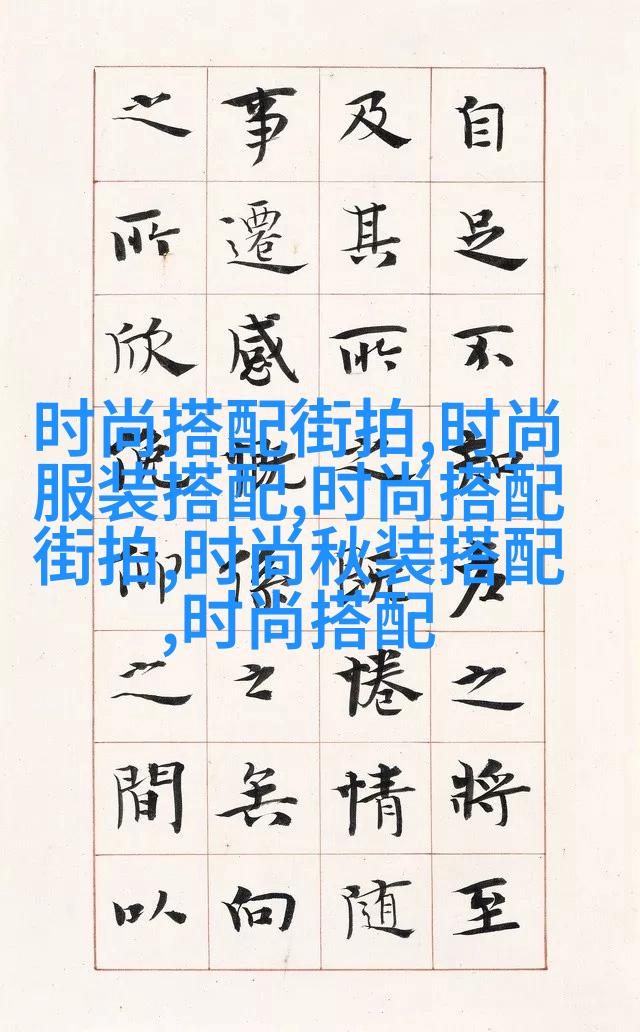 自足不知老之將至
及其所之既惓情随
事遷感慨係之矣向
之所欣俛仰之間以
时尚搭配街拍,时尚
服装搭配,时尚搭配
街拍,时尚秋装搭配
,时尚搭配